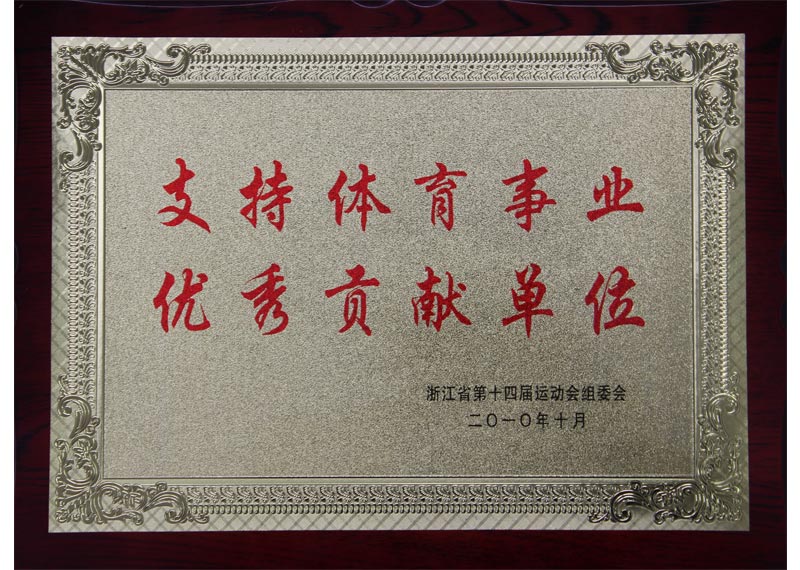 支持体育事业
优秀贡献单位
浙江省第十四届运动会组委会
二〇一〇年十月